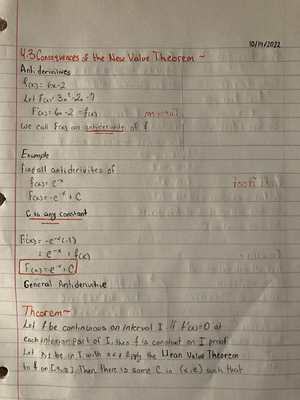 10/14/2022
4.3 Consequences of the New Value Theorem ~
Antiderivatives
f(x) = 6x-2
Let F(x) = 3x² - 2x - 7
F'(x) = 6x - 2 = f(x)
We call F(x) an antiderivative of f.
Example
Find all antiderivites of
f(x) = e⁻ˣ
F(x) = -e⁻ˣ + C
C is any constant
F'(x) = -e⁻ˣ(-1)
= e⁻ˣ = f(x)
F(x) = -e⁻ˣ + C
General Antiderivative
Theorem ~
Let f be continuous on interval I. If f'(x) = 0 at
each interior part of I, then f is constant on I proof
Let x, z be in I with x < z Apply the Mean Value Theorem
to f on [x, z]. Then there is some C in (x, z) such that